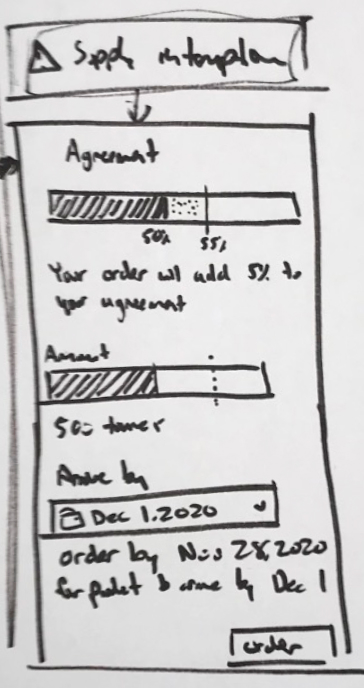 Supply interruption
Agreement
50% 55%
Your order will add 5% to
your agreement
Amount
500 tonnes
Arrive by
Dec 1, 2020
order by Nov 28, 2020
for product to arrive by Dec 1
order